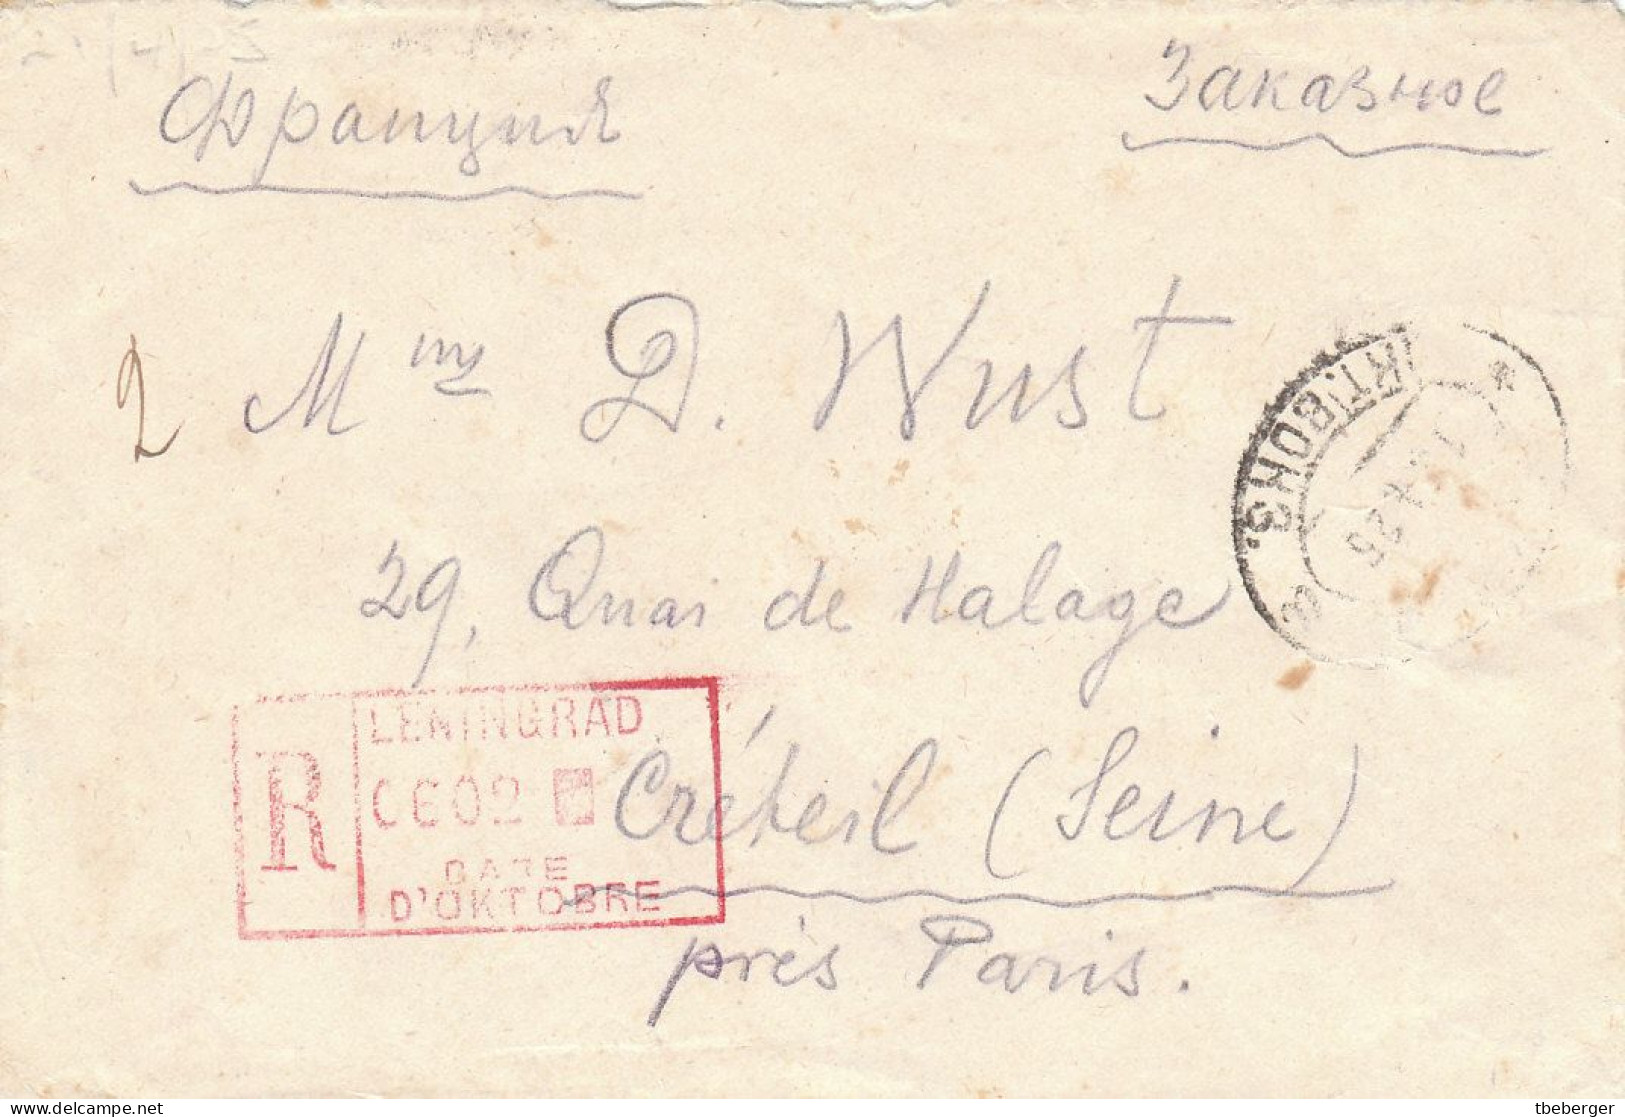 Франция
Заказное
2
Mme D. Wust
29, Quai de Halage
Créteil (Seine)
près Paris.
R
LENINGRAD
0602
GARE
D'OKTOBRE
ОКТ. ВОКЗ.
25
delcampe.net
tbeberger